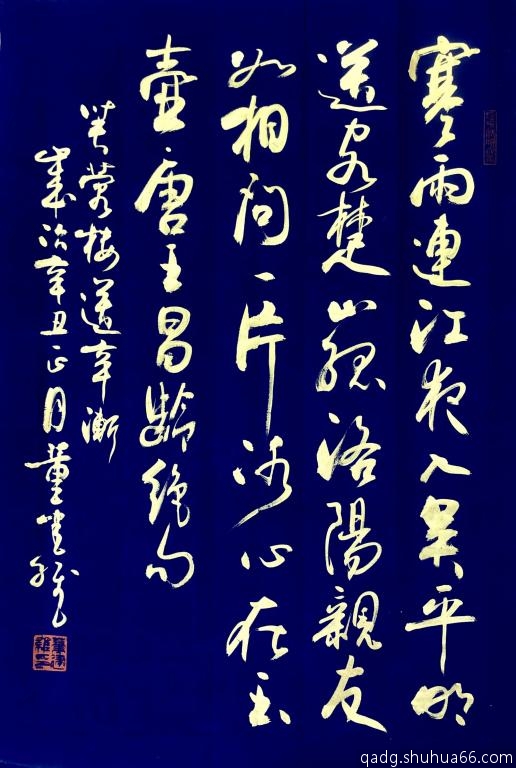 寒雨連江夜入吴平明
送客楚山孤洛陽親友
如相问一片冰心在玉
壺唐王昌齡絶句
芙蓉楼送辛漸
歲次辛丑正月董
qadg.shuhua66.com